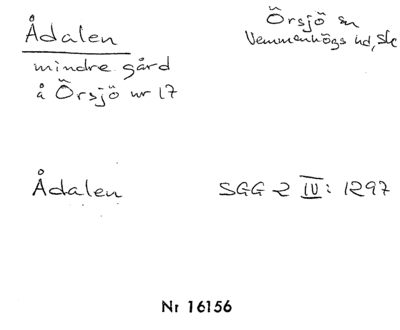 Ådalen
Örsjö sn
Vemmenhögs hd, Sk
mindre gård
å Örsjö nr 17
Ådalen
SGG 2 IV: 1297
Nr 16156